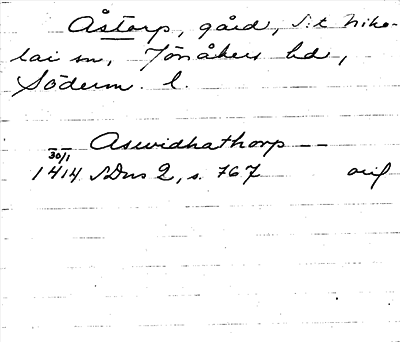 Åstorp, gård, S:t Niko-
lai sn, Jönåkers hd,
Söderm. l.
Aswidhathorp --
30/1
1414 SDns 2, s. 767 orig